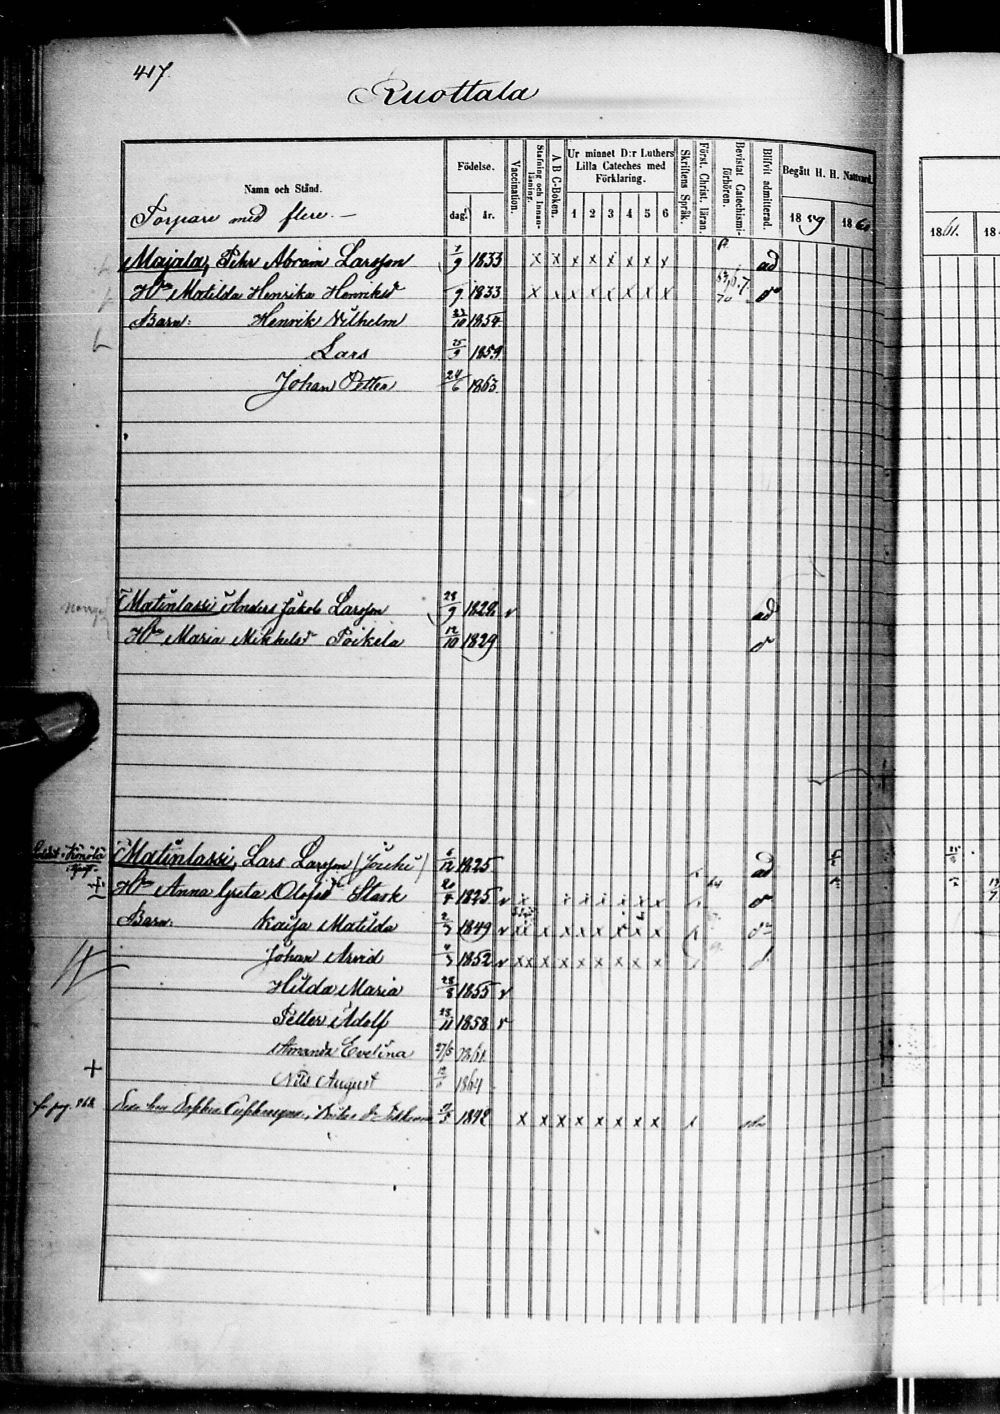 417.
Ruottala
Namn och Stånd.
Födelse.
dag. år.
Vaccination.
Stafning och Innanläsning.
A B C-Boken.
Ur minnet D:r Luthers Lilla Cateches med Förklaring.
1 2 3 4 5 6
Skriftens Språk.
Först. Christ. läran.
Bevistat Catechismiförhören.
Blifvit admitterad.
Begått H. H. Nattvard.
1859 1860
1861. 18
Torpare med flere. —
Majala, Pehr Abram Larsson 1/9 1833 x x x x x x x x ad
H:o Matilda Henrika Henriksd 9 1833 x x x x x x x x
Barn: Henrik Vilhelm 23/10 1854
Lars 25/9 1859
Johan Petter 24/6 1863
Matinlassi Anders Jakob Larsson 28/9 1828 v ad
H:o Maria Mikkelsd Poikela 12/10 1829
Matinlassi, Lars Larsson 6/12 1825 ad
H:o Anna Greta Olofsd Stark 20/4 1825 v x x x x x x x
Barn: Kaisa Matilda 2/3 1849 v x x x x x x x x x
Johan Arvid 4/3 1852 v x x x x x x x x x
Hilda Maria 28/8 1855 v
Petter Adolf 23/11 1858 v
Amanda Evelina 27/5 1861
Nils August 1864
fr pag. 268 x x x x x x x x